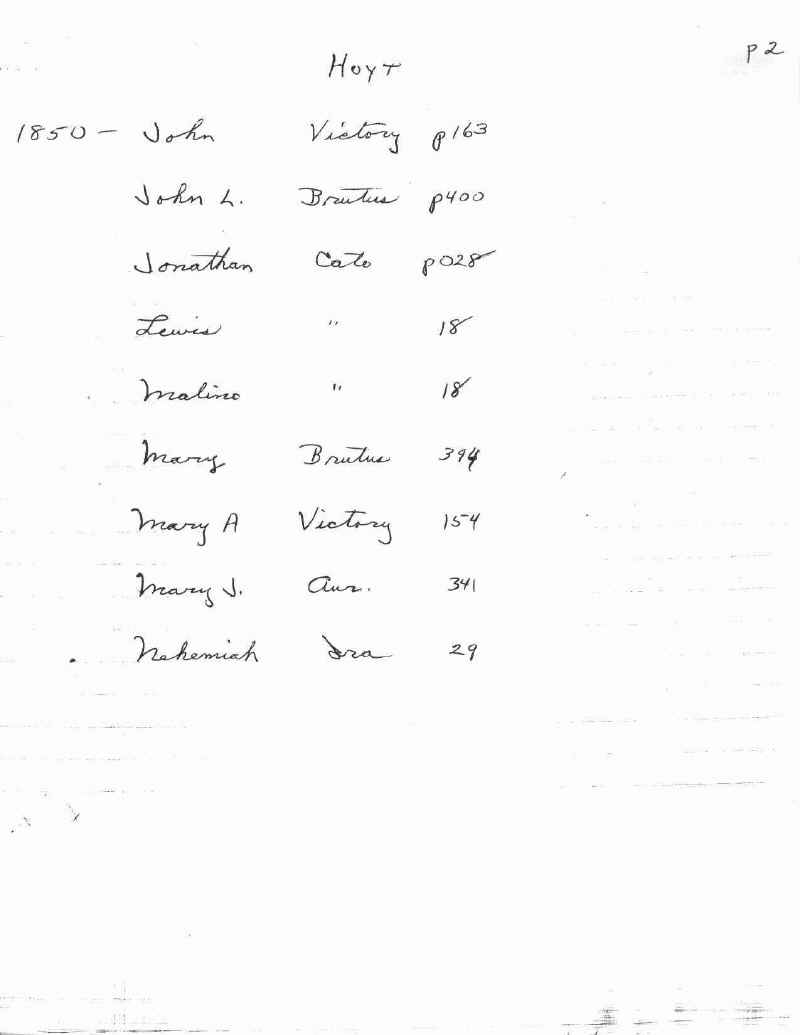 p 2
Hoyt
1850 - John Victory p163
John L. Brutus p400
Jonathan Cato p028
Lewis " 18
Malino " 18
Mary Brutus 394
Mary A Victory 154
Mary J. Aur. 341
Nehemiah Ira 29